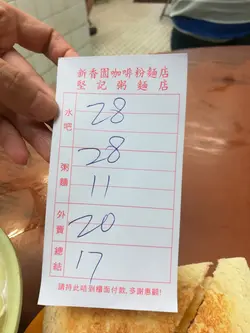 新香園咖啡粉麵店
堅記粥麵店
水吧
28
28
粥麵
11
外賣
20
總結
17
請持此咭到櫃面付款,多謝惠顧!